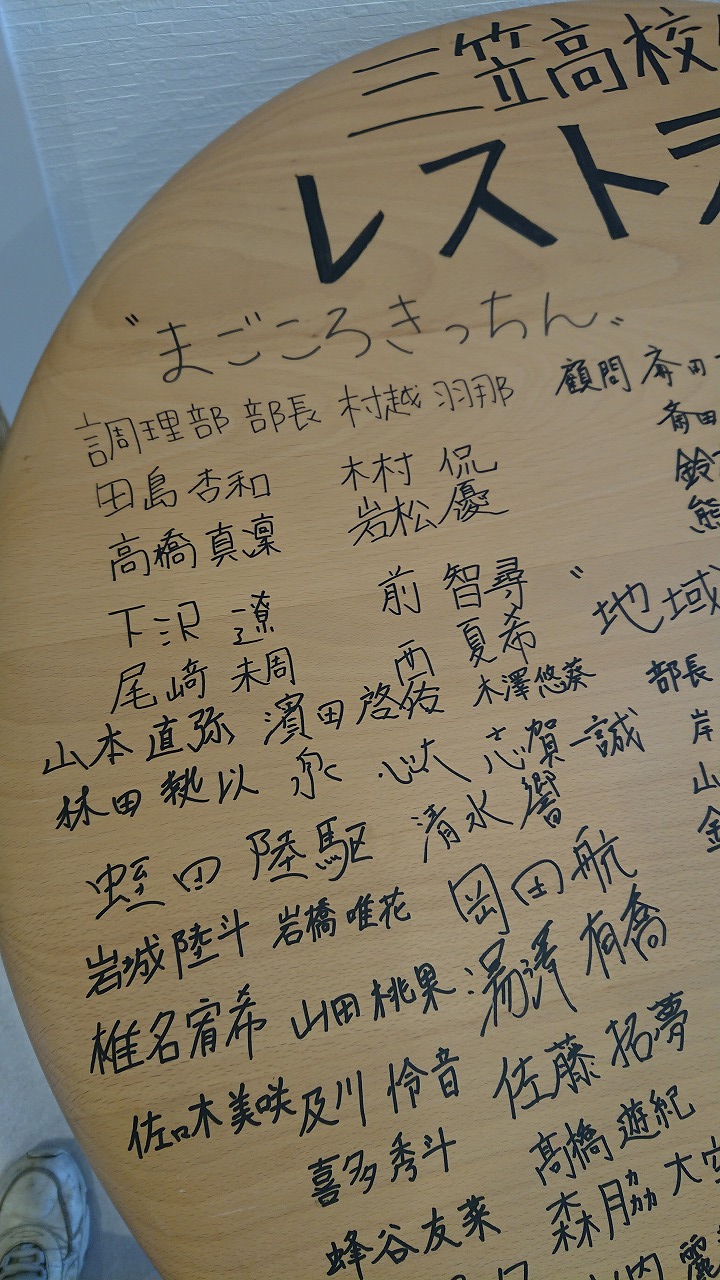 三笠高校
レストラ
〝まごころきっちん〟
調理部 部長 村越 羽那 顧問 斉田
田島 杏和 木村 侃 斎田
高橋 真凜 岩松 優 鈴
下沢 遼 前 智尋 熊
尾﨑 未周 西 夏希 〝地域
山本 直弥 濱田 啓佑 木澤悠葵 部長
林田 熱以 泉 心太 志賀一誠 岸
蛭田 陸駆 清水 響 山
岩城 陸斗 岩橋 唯花 岡田 航 金
椎名宥希 山田 桃果 湯澤 有喬
佐々木美咲 及川 怜音 佐藤 拓夢
喜多 秀斗 髙橋 遊紀
蜂谷友菜 森脇 大空
内 麗